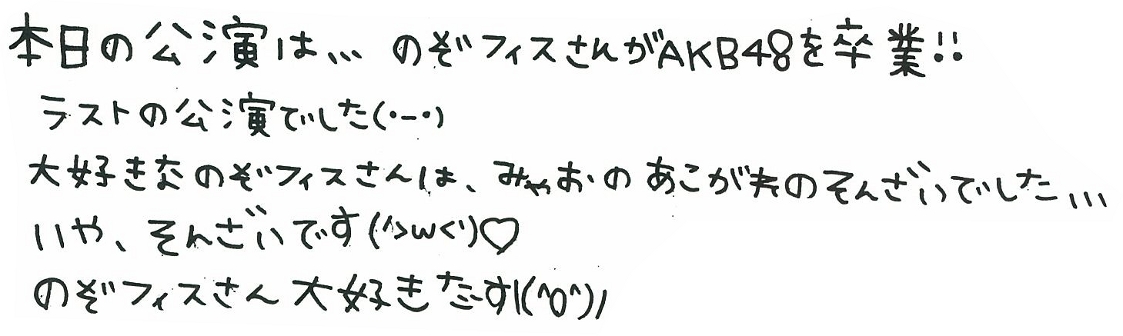 本日の公演は、、、のぞフィスさんがAKB48を卒業!!
ラストの公演でした(・ー・)
大好きなのぞフィスさんは、みゃおのあこがれのそんざいでした、、、
いや、そんざいです(^>w<^)♡
のぞフィスさん大好きだーす\(^o^)/